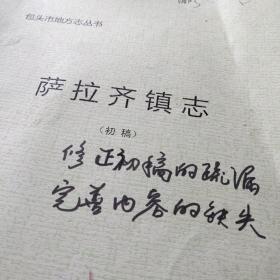 包头市地方志丛书
萨拉齐镇志
(初稿)
修正初稿的疏漏
完善内容的缺失